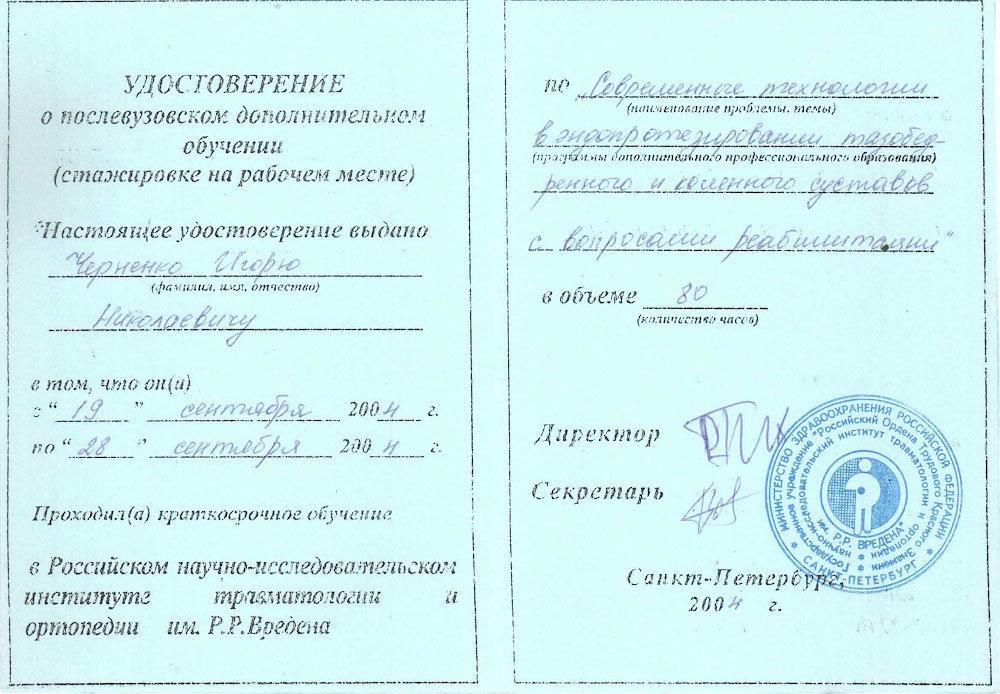 УДОСТОВЕРЕНИЕ
о послевузовском дополнительном
обучении
(стажировке на рабочем месте)
Настоящее удостоверение выдано
Черненко Игорю
(фамилия, имя, отчество)
Николаевичу
в том, что он(и)
с " 19 " сентября 2004 г.
по " 28 " сентября 2004 г.
Проходил(а) краткосрочное обучение
в Российском научно-исследовательском
институте травматологии и
ортопедии им. Р.Р.Вредена
по „Современные технологии
(наименование проблемы, темы)
в эндопротезировании тазобед-
(программы дополнительного профессионального образования)
ренного и коленного суставов
с вопросами реабилитации"
в объеме 80
(количество часов)
Директор
Секретарь
МИНИСТЕРСТВО ЗДРАВООХРАНЕНИЯ РОССИЙСКОЙ ФЕДЕРАЦИИ
* САНКТ-ПЕТЕРБУРГ *
Государственное учреждение "Российский Ордена Трудового Красного Знамени
научно-исследовательский институт травматологии и ортопедии
им. Р.Р. ВРЕДЕНА"
Санкт-Петербург,
2004 г.